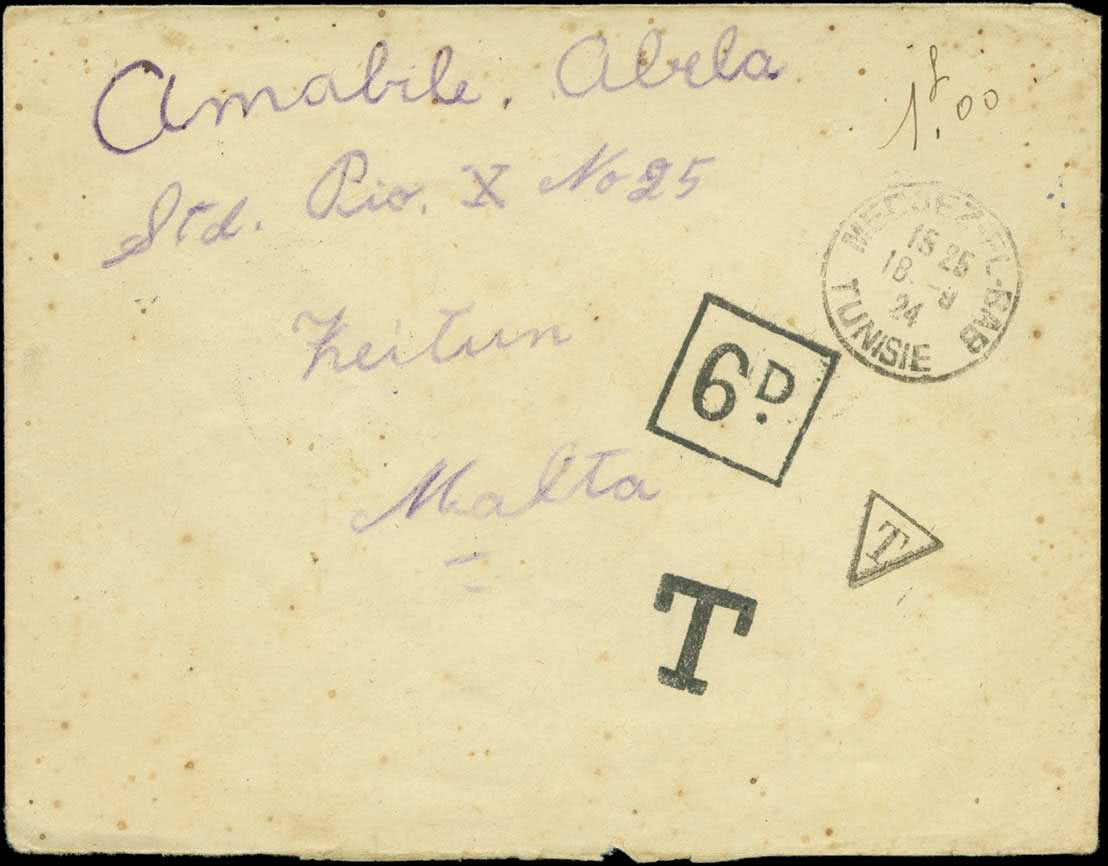 Amabile. Abela
1f.00
Std. Pio. X No 25
Zeitun
Malta
MEDJEZ-EL-BAB
15 25
18 -9
24
TUNISIE
6D.
T
T